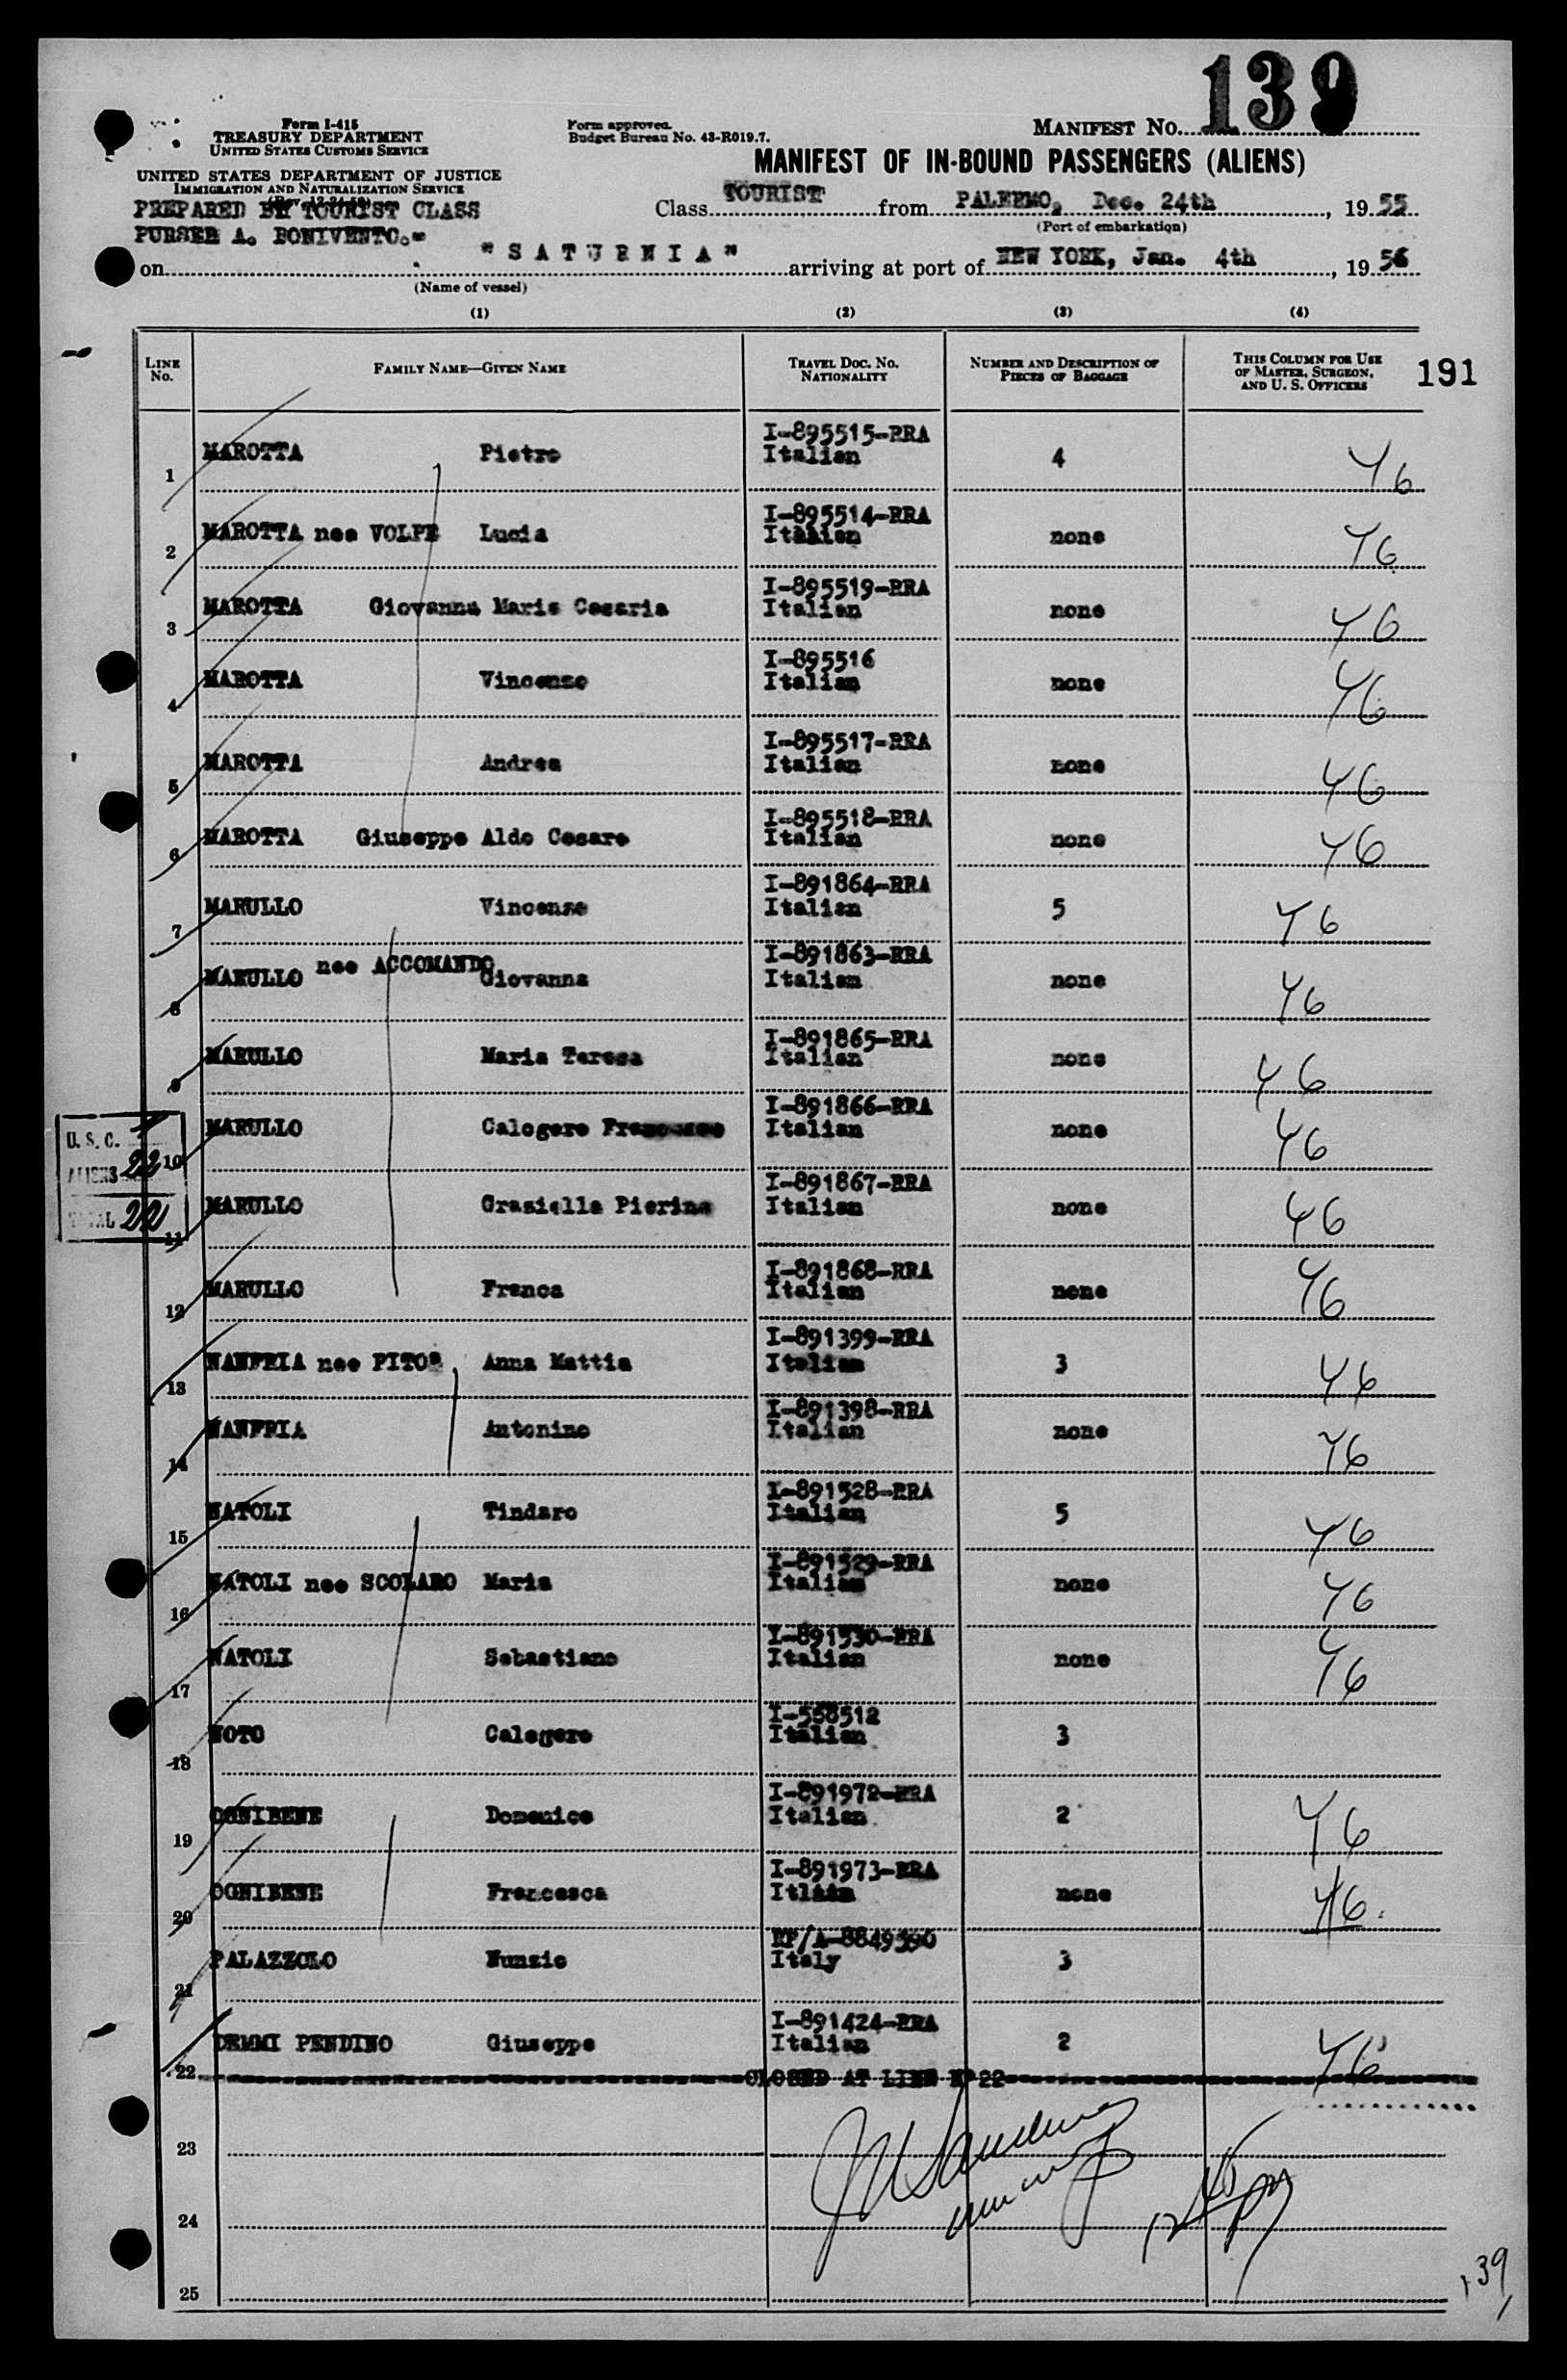 139
Form I-415
TREASURY DEPARTMENT
UNITED STATES CUSTOMS SERVICE
Form approved.
Budget Bureau No. 43-R019.7.
MANIFEST No.
MANIFEST OF IN-BOUND PASSENGERS (ALIENS)
UNITED STATES DEPARTMENT OF JUSTICE
IMMIGRATION AND NATURALIZATION SERVICE
PREPARED BY TOURIST CLASS
PURSER A. BONIVENTO.-
Class TOURIST from PALERMO, Dec. 24th, 1955
(Port of embarkation)
on "SATURNIA" arriving at port of NEW YORK, Jan. 4th, 1956
(Name of vessel)
(1) (2) (3) (4)
LINE No. FAMILY NAME—GIVEN NAME TRAVEL DOC. No. NATIONALITY NUMBER AND DESCRIPTION OF PIECES OF BAGGAGE THIS COLUMN FOR USE OF MASTER, SURGEON, AND U. S. OFFICERS 191
1 MAROTTA Pietro I-895515-RRA Italian 4 46
2 MAROTTA nee VOLPE Lucia I-895514-RRA Italian none 46
3 MAROTTA Giovanna Maria Cesaria I-895519-RRA Italian none 46
4 MAROTTA Vincenzo I-895516 Italian none 46
5 MAROTTA Andrea I-895517-RRA Italian none 46
6 MAROTTA Giuseppe Aldo Cesare I-895518-RRA Italian none 46
7 MARULLO Vincenzo I-891864-RRA Italian 5 46
8 MARULLO nee ACCOMANDO Giovanna I-891863-RRA Italian none 46
9 MARULLO Maria Teresa I-891865-RRA Italian none 46
10 MARULLO Calogero Francesco I-891866-RRA Italian none 46
11 MARULLO Graziella Pierina I-891867-RRA Italian none 46
12 MARULLO Franca I-891868-RRA Italian none 46
13 NANFRIA nee PITO' Anna Mattia I-891399-RRA Italian 3 46
14 NANFRIA Antonino I-891398-RRA Italian none 46
15 NATOLI Tindaro I-891528-RRA Italian 5 46
16 NATOLI nee SCOLARO Maria I-891529-RRA Italian none 46
17 NATOLI Sebastiano I-891530-RRA Italian none 46
18 NOTO Calogero I-558512 Italian 3
19 OGNIBENE Domenico I-891972-RRA Italian 2 46
20 OGNIBENE Francesca I-891973-RRA none 46
21 PALAZZOLO Nunzio RP/A-8849590 Italy 3
22 DEMMI PENDINO Giuseppe I-891424-RRA Italian 2 46
CLOSED AT LINE N°22
23
24
25
U.S.C.
ALIENS 22
TOTAL 22
139